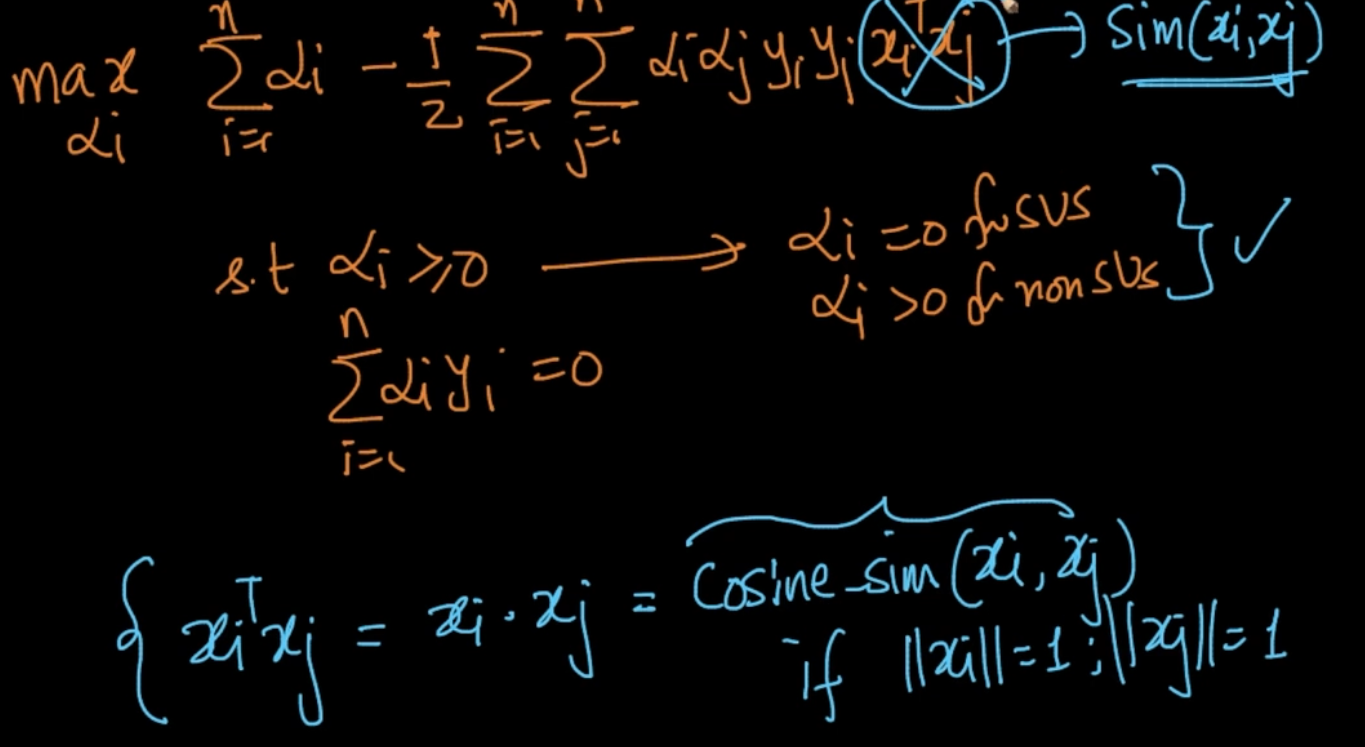 max αi n Σ i=1 αi - 1/2 n Σ i=1 n Σ j=1 αi αj yi yj xiᵀxj → Sim(xi, xj)
s.t αi ≥ 0 → αi = 0 for SVs
αi > 0 for non SVs } ✓
n Σ i=1 αi yi = 0
{ xiᵀxj = xi · xj = Cosine-sim (xi, xj)
if ||xi|| = 1 ; ||xj|| = 1